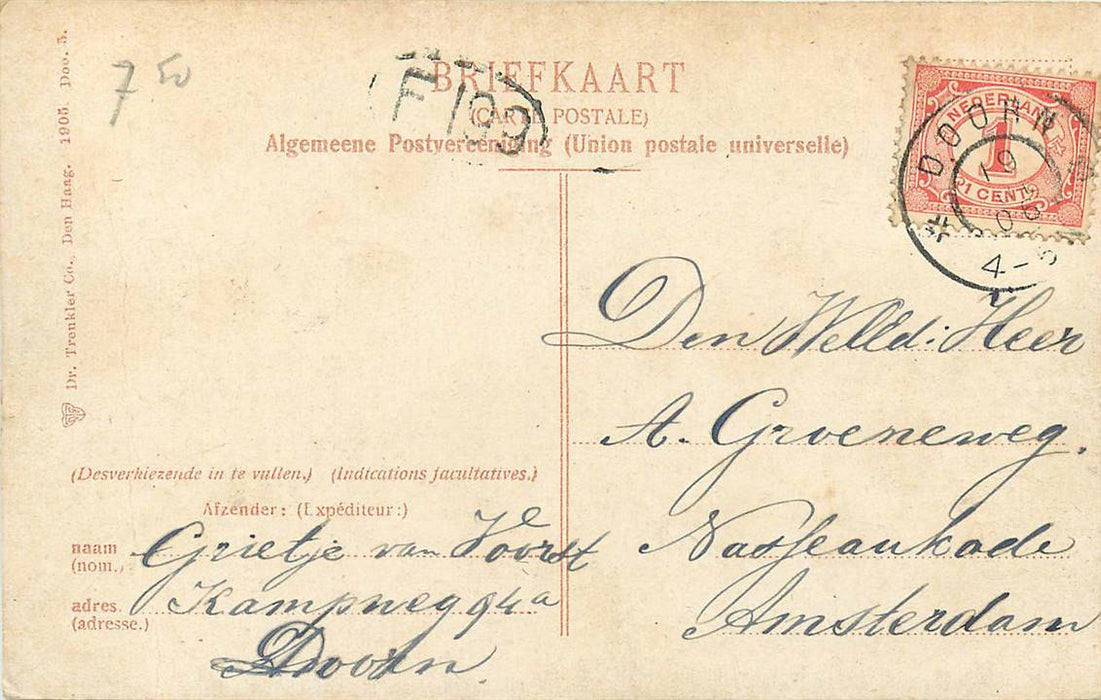 7 50
BRIEFKAART
F 199
(CARTE POSTALE)
Algemeene Postvereeniging (Union postale universelle)
NEDERLAND
1
1 CENT
DOORN
19
05
4-5
Dr. Trenkler Co., Den Haag. 1905. Doo. 5.
Den Welld: Heer
A. Groeneweg.
Nasseaukade
Amsterdam
(Desverkiezende in te vullen.) (Indications facultatives.)
Afzender: (Expéditeur:)
naam Grietje van Voorst
(nom.)
adres. Kampweg 94a
(adresse.)
Doorn